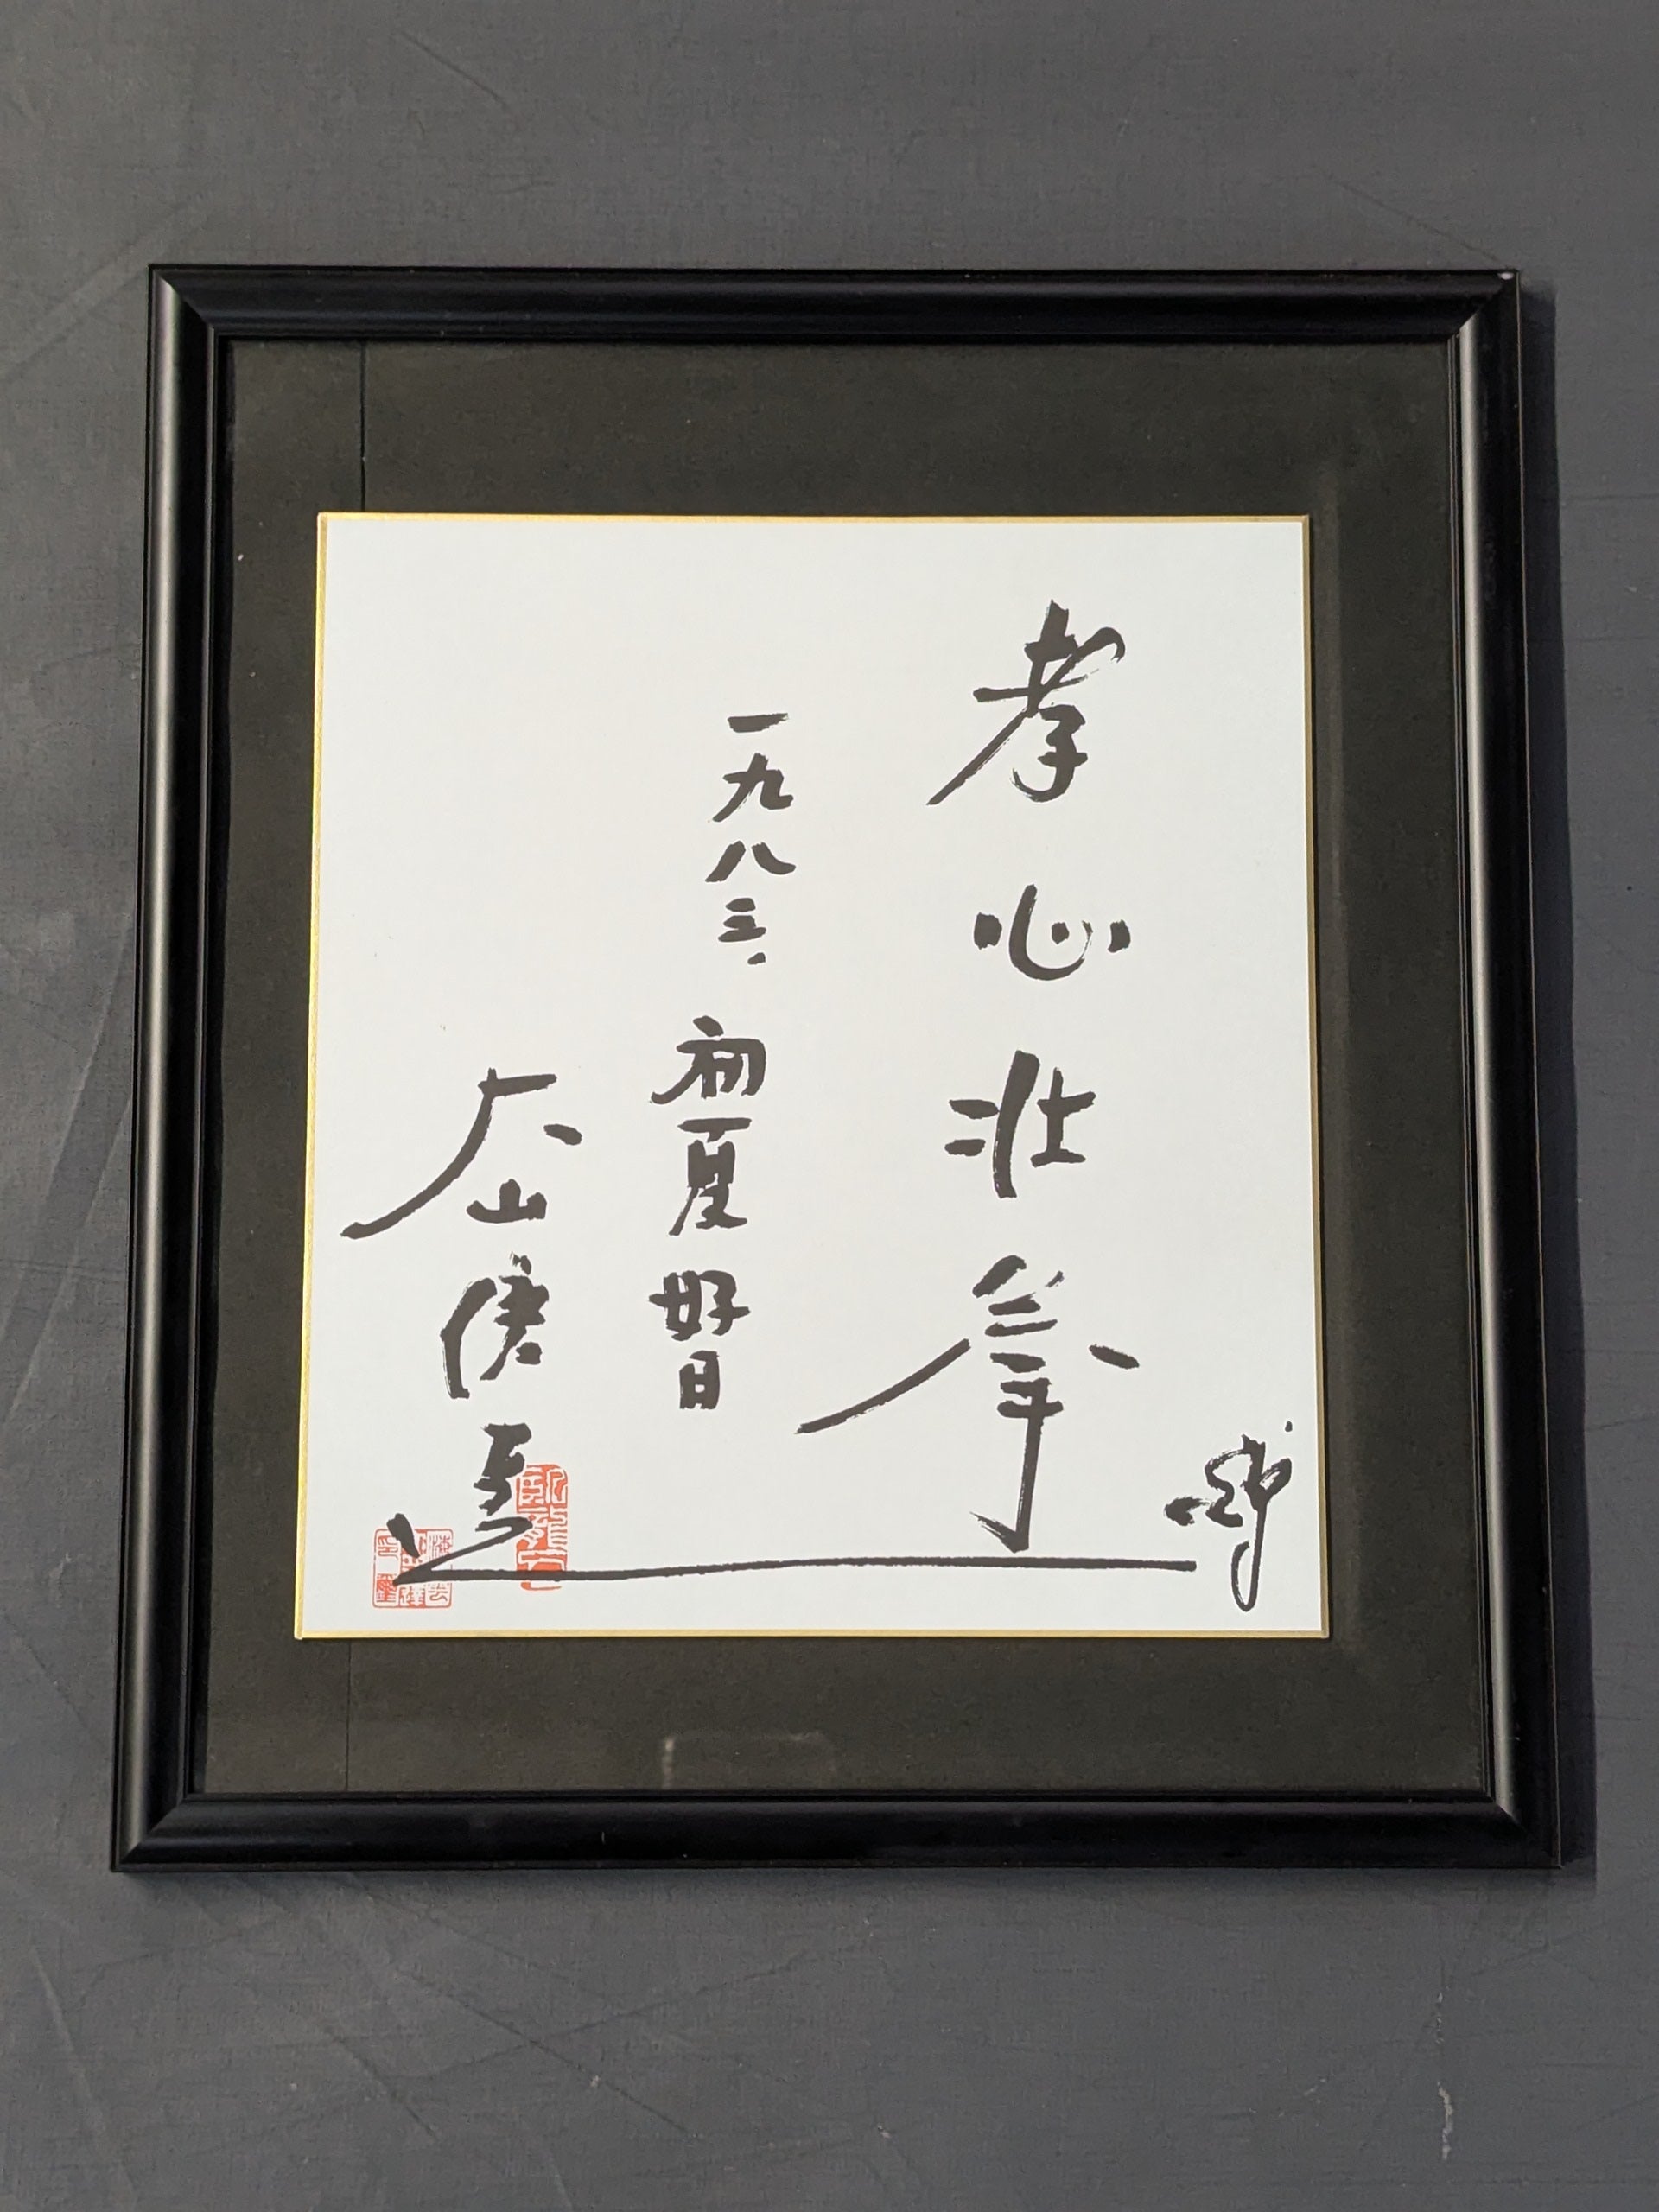 孝心壮拳
一九八三、初夏好日
大山倍達